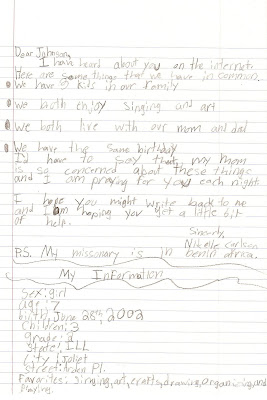 Dear Johnson,
I have heard about you on the internet.
Here are some things that we have in common.
We have 3 kids in our family
we both enjoy singing and art
we both live with our mom and dad
We have the same birthday
I'd have to say that my mom
is so concerned about these things
and I am praying for you each night.
I hope you might write back to me
and I am hoping you get a little bit
of help.
Carlson
P.S. My missionary is in Benin africa.
My Information
Sex: girl
age: 7
birth: June 28th, 2002
Children: 3
grade: 2
State: ILL
City: Joliet
Street: Arden Pl.
Favorites: singing, art, crafts, drawing, organizing, and
playing.